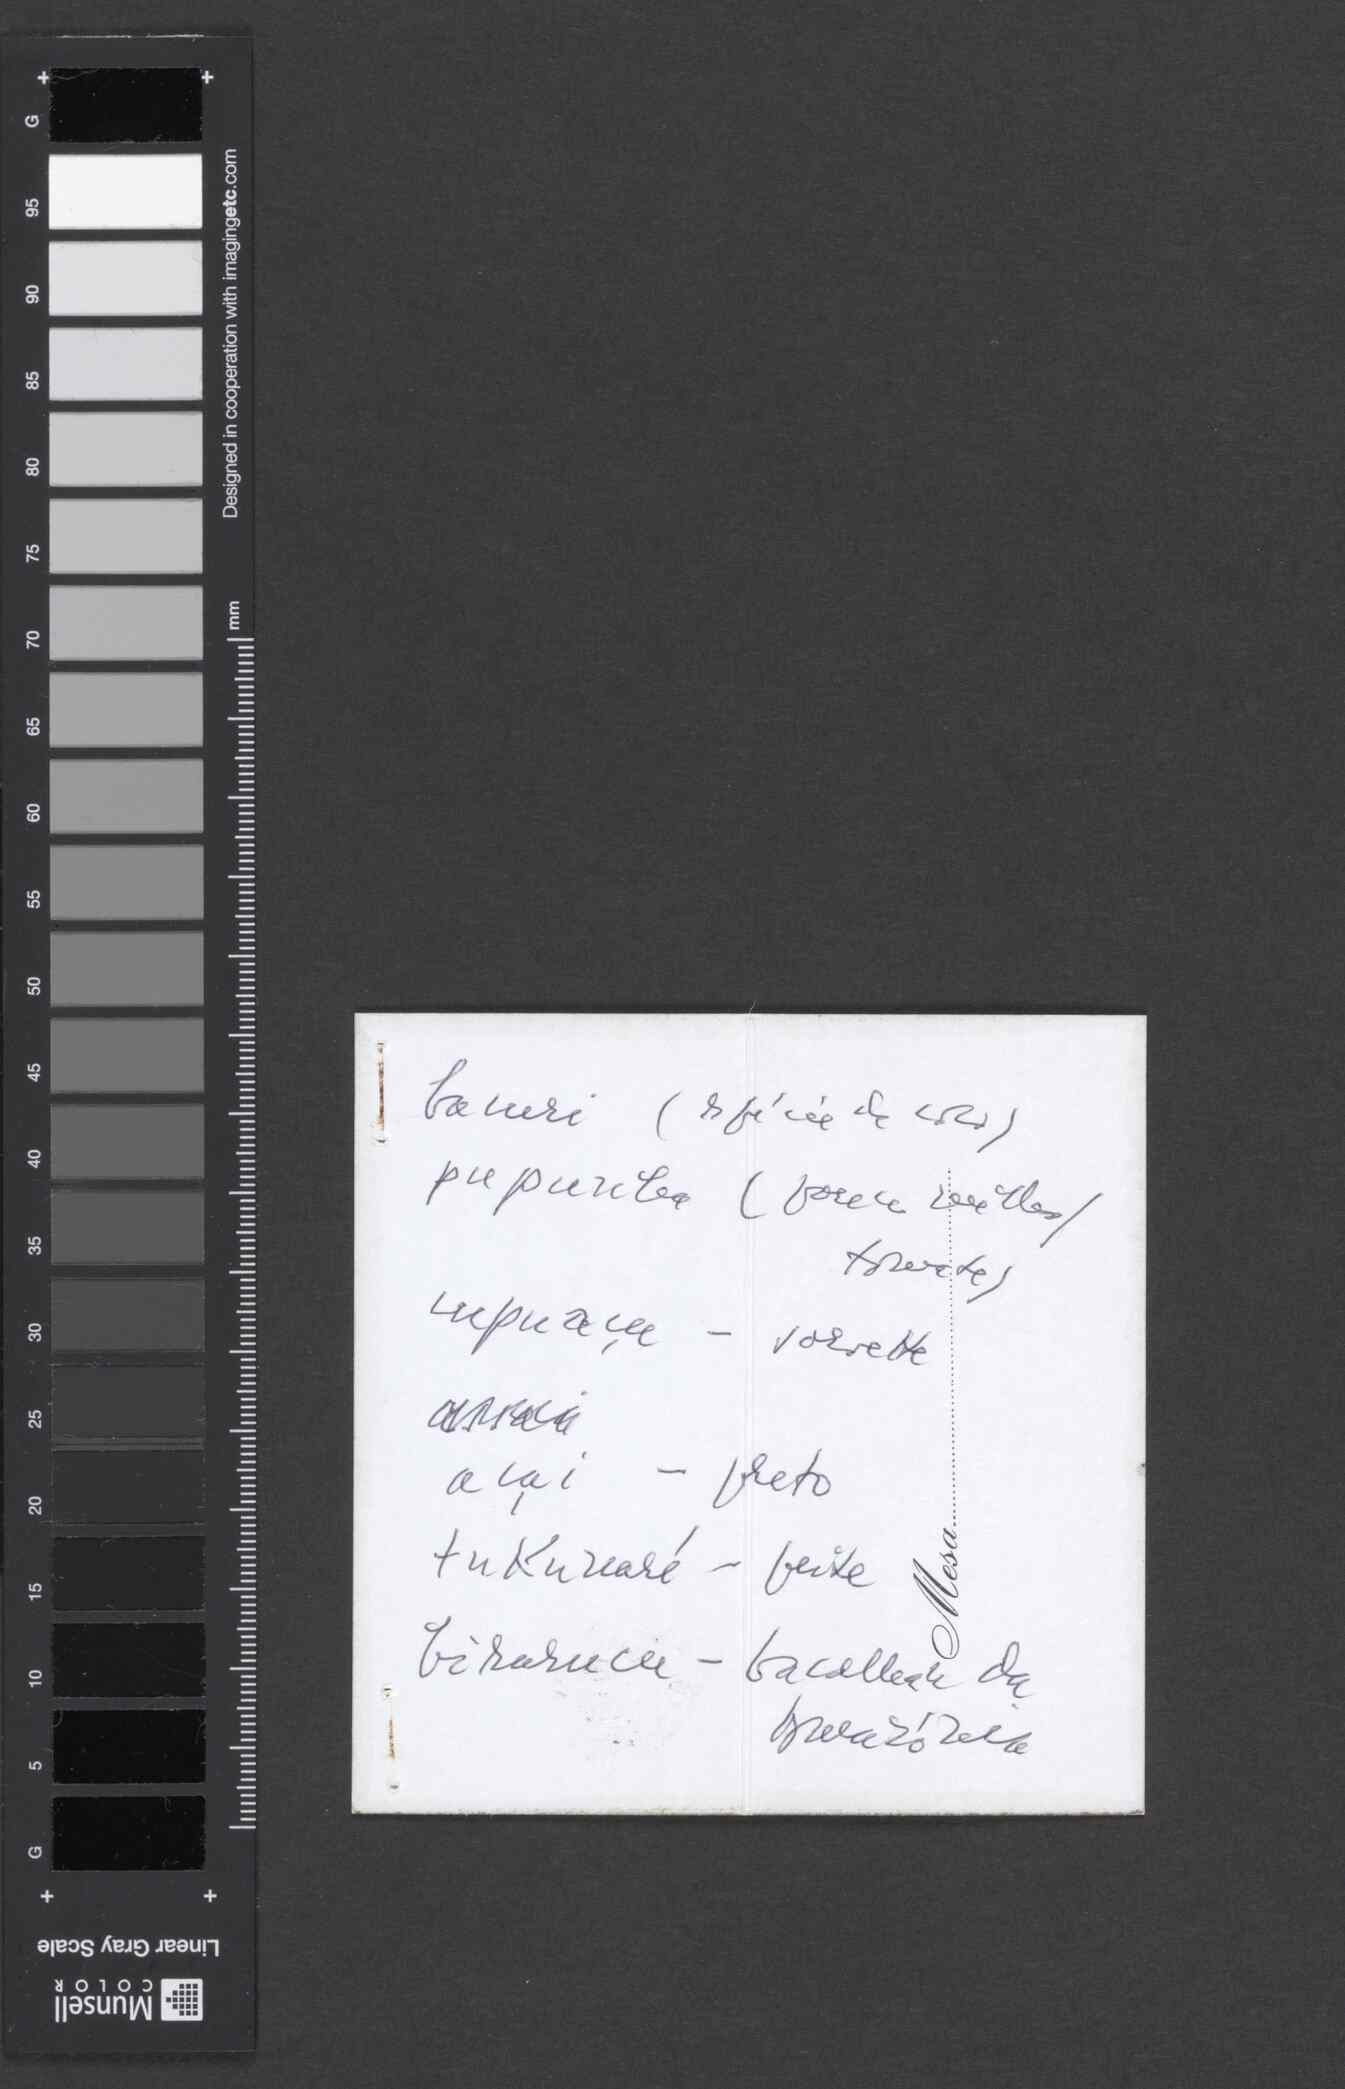 bacuri (espécie de coco)
pupunha (forma milho/
tomate)
cupuaçu – sorvete
açai – preto
tukunaré – peixe
pirarucu – bacalhau da
Amazônia
Mesa
G 95 90 85 80 75 70 65 60 55 50 45 40 35 30 25 20 15 10 5 G
Designed in cooperation with imagingetc.com
mm
Linear Gray Scale
Munsell
COLOR